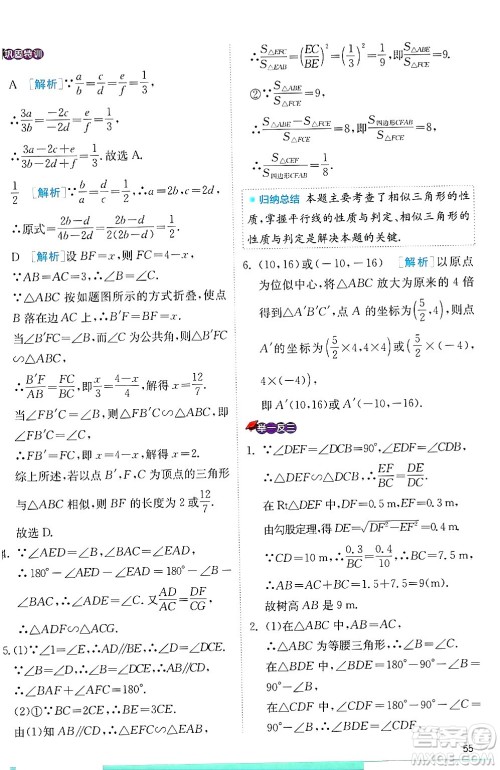 巩固特训
A [解析]∵a/b=c/d=e/f=1/3,
∴3a/3b=-2c/-2d=e/f=1/3,
∴3a-2c+e/3b-2d+f=1/3. 故选 A.
1/2 [解析]∵a/b=c/d=2,∴a=2b,c=2d,
∴原式=2b-2d/4b-4d=2(b-d)/4(b-d)=1/2.
D [解析]设 BF=x,则 FC=4-x,
∵AB=AC=3,∴∠B=∠C.
∵△ABC 按如题图所示的方式折叠,使点
B 落在边上 B′处,∴B′F=BF=x.
当∠FB′C=∠B,而∠C 为公共角,∴△B′FC
∽△ABC,
∴B′F/AB=FC/BC,即x/3=4-x/4,解得 x=12/7.
当∠FB′C=∠A,而∠B=∠C,∴△FB′C
∽△ABC,此时 FC=FB′,即 4-x=x,解得
x=2.
综上所述,若以点 B′,F,C 为顶点的三角形
与△ABC 相似,则 BF 的长度为 2 或12/7.
故选 D.
4. ∵∠AED=∠B,∠BAC=∠EAD,
∴180°-∠AED-∠EAD=180°-∠B-
∠BAC,∴∠ADF=∠C. 又∵AD/AC=DF/CG,
∴△ADF∽△ACG.
5.(1)∵∠1=∠E,∴AD∥BE,∴∠D=∠DCE.
∵∠B=∠D,∴∠B=∠DCE,∴AB∥CD.
(2)①∵BC=2EC,∴BE=BC+EC=3EC.
由(1)知 AB∥CD,∴△FCE∽△ABE,
∴S△EFC/S△EAB=(EC/BE)²=(1/3)²=1/9,即S△EAB/S△FCE=9.
②∵S△ABE/S△FCE=9,
∴S△ABE-S△FCE/S△FCE=8,即S四边形ABCF/S△FCE=8,
∴S△CEF/S四边形ABCF=1/8.
归纳总结 本题主要考查了相似三角形的性
质,掌握平行线的性质与判定、相似三角形的
性质与判定是解决本题的关键.
6.(10,16)或(-10,-16) [解析]以原点
为位似中心,将△ABC 放大为原来的 4 倍
得到△A′B′C′,点 A 的坐标为(5/2,4),则点
A′的坐标为(5/2×4,4×4)或(-5/2×4,
4×(-4)),
即 A′(10,16)或(-10,-16).
举一反三
1. ∵∠DEF=∠DCB=90°,∠D=∠D,
∴△DEF∽△DCB,∴EF/BC=DE/DC.
在 Rt△DEF 中,DF=0.5 m,EF=0.3 m,
由勾股定理,得 DE=√DF²-EF²=0.4 m.
∵CD=10 m,∴0.3/BC=0.4/10,∴BC=7.5 m,
∴AB=AC+BC=1.5+7.5=9(m).
故树高 AB 是 9 m.
2. (1)在△ABC 中,∵AB=AC=3,
∴△ABC 为等腰三角形,∴∠B=∠C.
在△BDE 中,∠BDE=180°-∠B-∠BED.
∵∠DEF=∠B,∴∠BDE=180°-∠DEF-
55